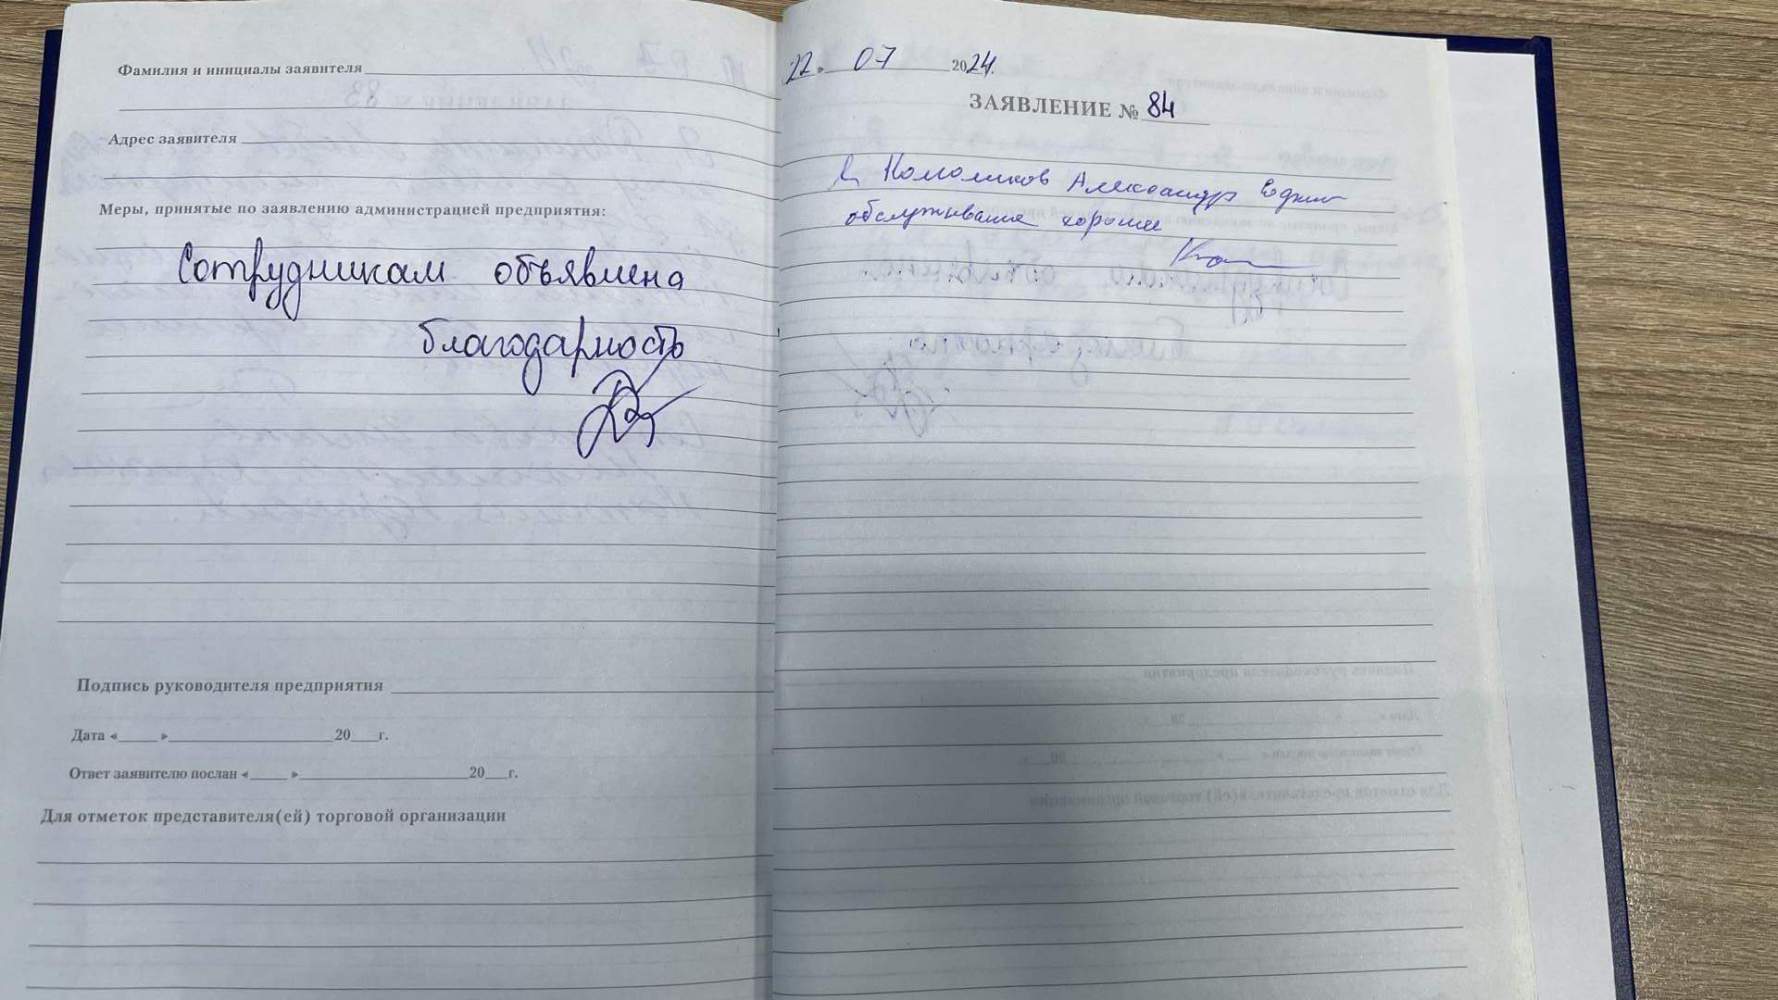 Фамилия и инициалы заявителя
Адрес заявителя
Меры, принятые по заявлению администрацией предприятия:
Сотрудникам объявлена
благодарность
Подпись руководителя предприятия
Дата «___» ___ 20__г.
Ответ заявителю послан «___» ___ 20__г.
Для отметок представителя(ей) торговой организации
22. 07 2024.
ЗАЯВЛЕНИЕ № 84
Я, Александр
обслуживание хорошее